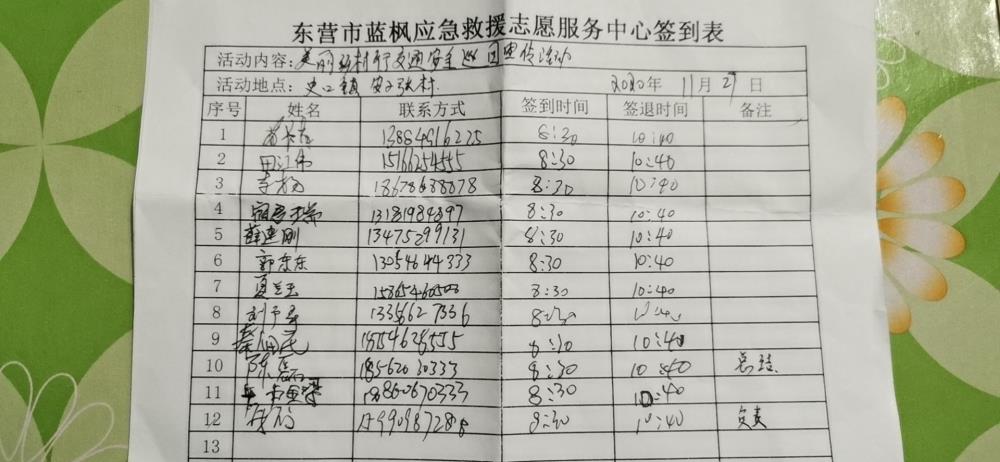 东营市蓝枫应急救援志愿服务中心签到表
活动内容：美丽乡村行交通安全巡回宣传活动
活动地点：史口镇 安子张村 2020年 11月 29日
序号 姓名 联系方式 签到时间 签退时间 备注
1 13884916225 8:30 10:40
2 田江伟 15166254555 8:30 10:40
3 李杨 18678638078 8:30 10:40
4 13181984897 8:30 10:40
5 薛建刚 13475299131 8:30 10:40
6 郭东东 13054644333 8:30 10:40
7 夏兰玉 8:30 10:40
8 13356627336 8:30 10:40
9 18554628555 8:30 10:40
10 陈磊 18562030333 8:30 10:40 总结
11 18860670333 8:30 10:40
12 15990987288 8:30 10:40 负责
13